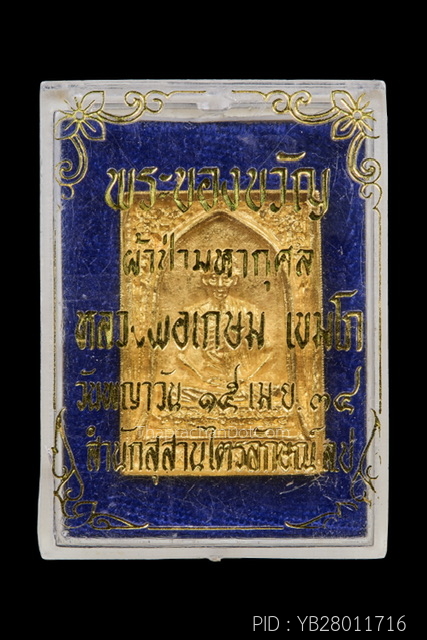 พระของขวัญ
ผ้าป่ามหากุศล
หลวงพ่อเกษม เขมโก
วันพญาวัน ๑๕ เม.ย. ๓๔
สำนักสุสานไตรลักษณ์ ลป
PID : YB28011716